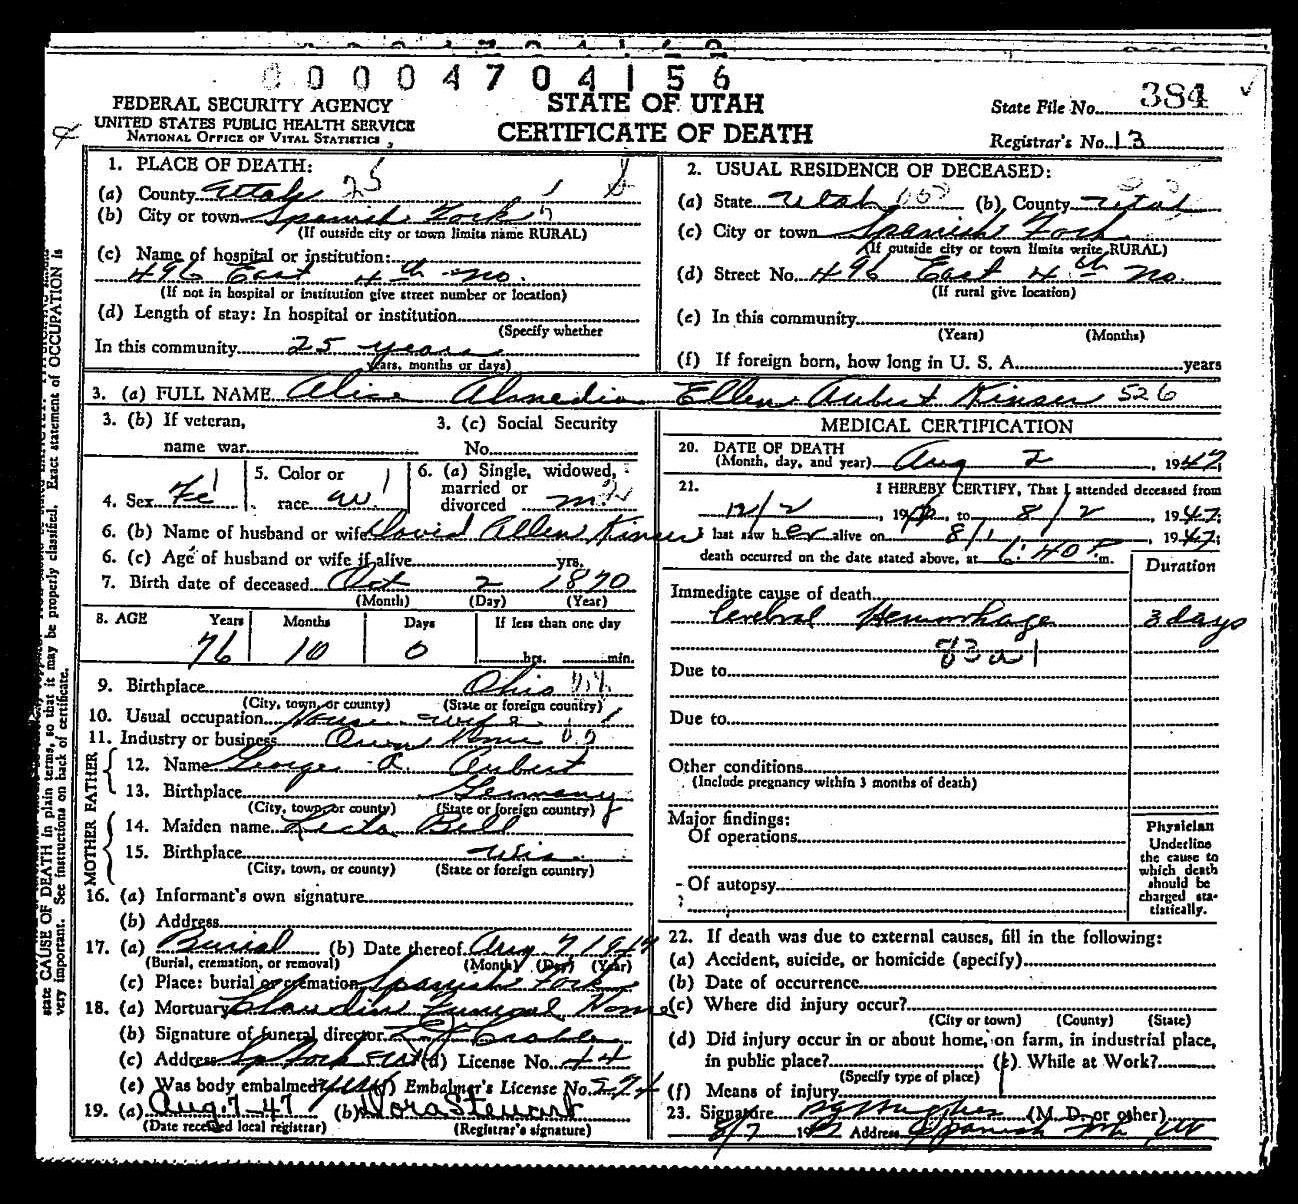 00004704156
FEDERAL SECURITY AGENCY
UNITED STATES PUBLIC HEALTH SERVICE
NATIONAL OFFICE OF VITAL STATISTICS
STATE OF UTAH
CERTIFICATE OF DEATH
State File No. 384
Registrar's No. 13
1. PLACE OF DEATH:
(a) County Utah 25
(b) City or town Spanish Fork
(If outside city or town limits name RURAL)
(c) Name of hospital or institution:
496 East 4th No.
(If not in hospital or institution give street number or location)
(d) Length of stay: In hospital or institution
(Specify whether
In this community 25 years
years, months or days)
2. USUAL RESIDENCE OF DECEASED:
(a) State Utah (b) County Utah
(c) City or town Spanish Fork
(If outside city or town limits write RURAL)
(d) Street No. 496 East 4th No.
(If rural give location)
(e) In this community
(Years) (Months)
(f) If foreign born, how long in U. S. A. years
3. (a) FULL NAME Alice Almedia Ellen Aubert Kinser 526
3. (b) If veteran,
name war
3. (c) Social Security
No.
4. Sex Fe
5. Color or
race W
6. (a) Single, widowed,
married or
divorced m
6. (b) Name of husband or wife David Allen Kinser
6. (c) Age of husband or wife if alive yrs.
7. Birth date of deceased Oct 2 1870
(Month) (Day) (Year)
8. AGE Years Months Days If less than one day
76 10 0 hrs. min.
9. Birthplace Ohio
(City, town, or county) (State or foreign country)
10. Usual occupation House wife
11. Industry or business Own Home
FATHER
12. Name George A. Aubert
13. Birthplace Germany
(City, town, or county) (State or foreign country)
MOTHER
14. Maiden name Bell
15. Birthplace Wis.
(City, town, or county) (State or foreign country)
16. (a) Informant's own signature
(b) Address
17. (a) Burial (b) Date thereof Aug 7 1947
(Burial, cremation, or removal) (Month) (Day) (Year)
(c) Place: burial or cremation Spanish Fork
18. (a) Mortuary Claudin Funeral Home
(b) Signature of funeral director
(c) Address Sp Fork Ut (d) License No. 44
(e) Was body embalmed? Yes (f) Embalmer's License No. 574
19. (a) Aug. 7-47 (b) Dora Stewart
(Date received local registrar) (Registrar's signature)
MEDICAL CERTIFICATION
20. DATE OF DEATH
(Month, day, and year) Aug 2, 1947
21. I HEREBY CERTIFY, That I attended deceased from
12/2, 19, to 8/2 1947;
I last saw her alive on 8/1, 1947;
death occurred on the date stated above, at 6:40 P. m.
Duration
Immediate cause of death
Cerebral Hemorrhage 3 days
83a1
Due to
Due to
Other conditions
(Include pregnancy within 3 months of death)
Major findings:
Of operations
Of autopsy
Physician
Underline
the cause to
which death
should be
charged sta-
tistically.
22. If death was due to external causes, fill in the following:
(a) Accident, suicide, or homicide (specify)
(b) Date of occurrence
(c) Where did injury occur?
(City or town) (County) (State)
(d) Did injury occur in or about home, on farm, in industrial place,
in public place? (e). While at Work?
(Specify type of place)
(f) Means of injury
23. Signature Hughes (M. D. or other)
8/7 1947 Address Spanish Fork Ut
state CAUSE OF DEATH in plain terms, so that it may be properly classified. Exact statement of OCCUPATION is
very important. See instructions on back of certificate.